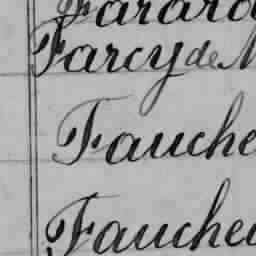 Farard
Farcy de
Fauche
Fauche